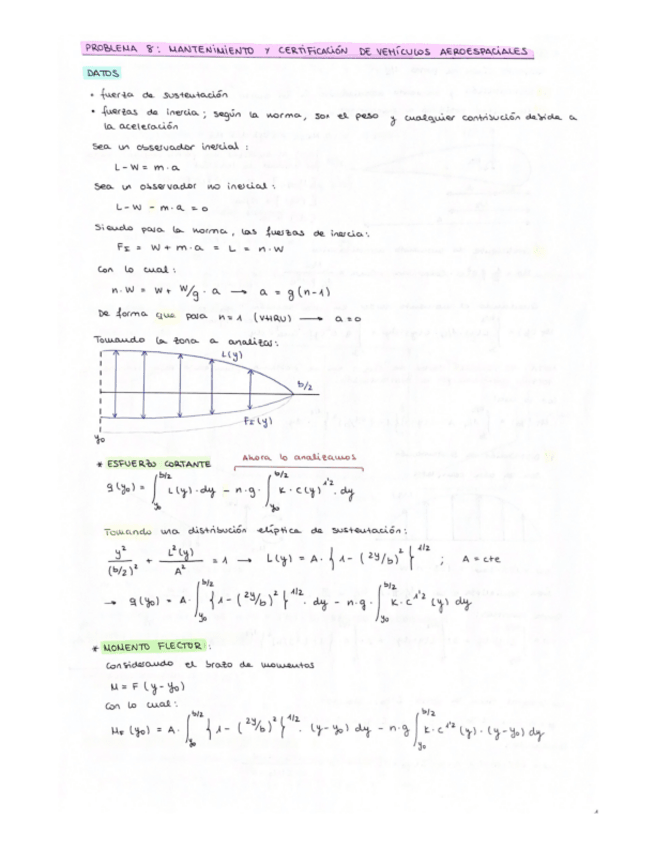 PROBLEMA 8: MANTENIMIENTO Y CERTIFICACIÓN DE VEHÍCULOS AEROESPACIALES
DATOS
• fuerza de sustentación
• fuerzas de inercia; según la norma, son el peso y cualquier contribución debida a
la aceleración
Sea un observador inercial:
L - W = m·a
Sea un observador no inercial:
L - W - m·a = 0
Siendo para la norma, las fuerzas de inercia:
F_I = W + m·a = L = n·W
Con lo cual:
n·W = W + W/g · a → a = g(n-1)
De forma que para n=1 (VHRU) → a=0
Tomando la zona a analizar:
L(y)
b/2
F_I(y)
y₀
Ahora lo analizamos
* ESFUERZO CORTANTE
q(y₀) = ∫_{y₀}^{b/2} L(y)·dy - n·g·∫_{y₀}^{b/2} K·c(y)^{1'2}·dy
Tomando una distribución elíptica de sustentación:
y²/(b/2)² + L²(y)/A² = 1 → L(y) = A·{1-(2y/b)²}^{1/2} ; A = cte
→ q(y₀) = A·∫_{y₀}^{b/2} {1-(2y/b)²}^{1/2}·dy - n·g·∫_{y₀}^{b/2} K·c^{1'2}(y) dy
* MOMENTO FLECTOR:
Considerando el brazo de momentos
M = F(y-y₀)
Con lo cual:
M_F(y₀) = A·∫_{y₀}^{b/2} {1-(2y/b)²}^{1/2}·(y-y₀) dy - n·g ∫_{y₀}^{b/2} K·c^{1'2}(y)·(y-y₀) dy